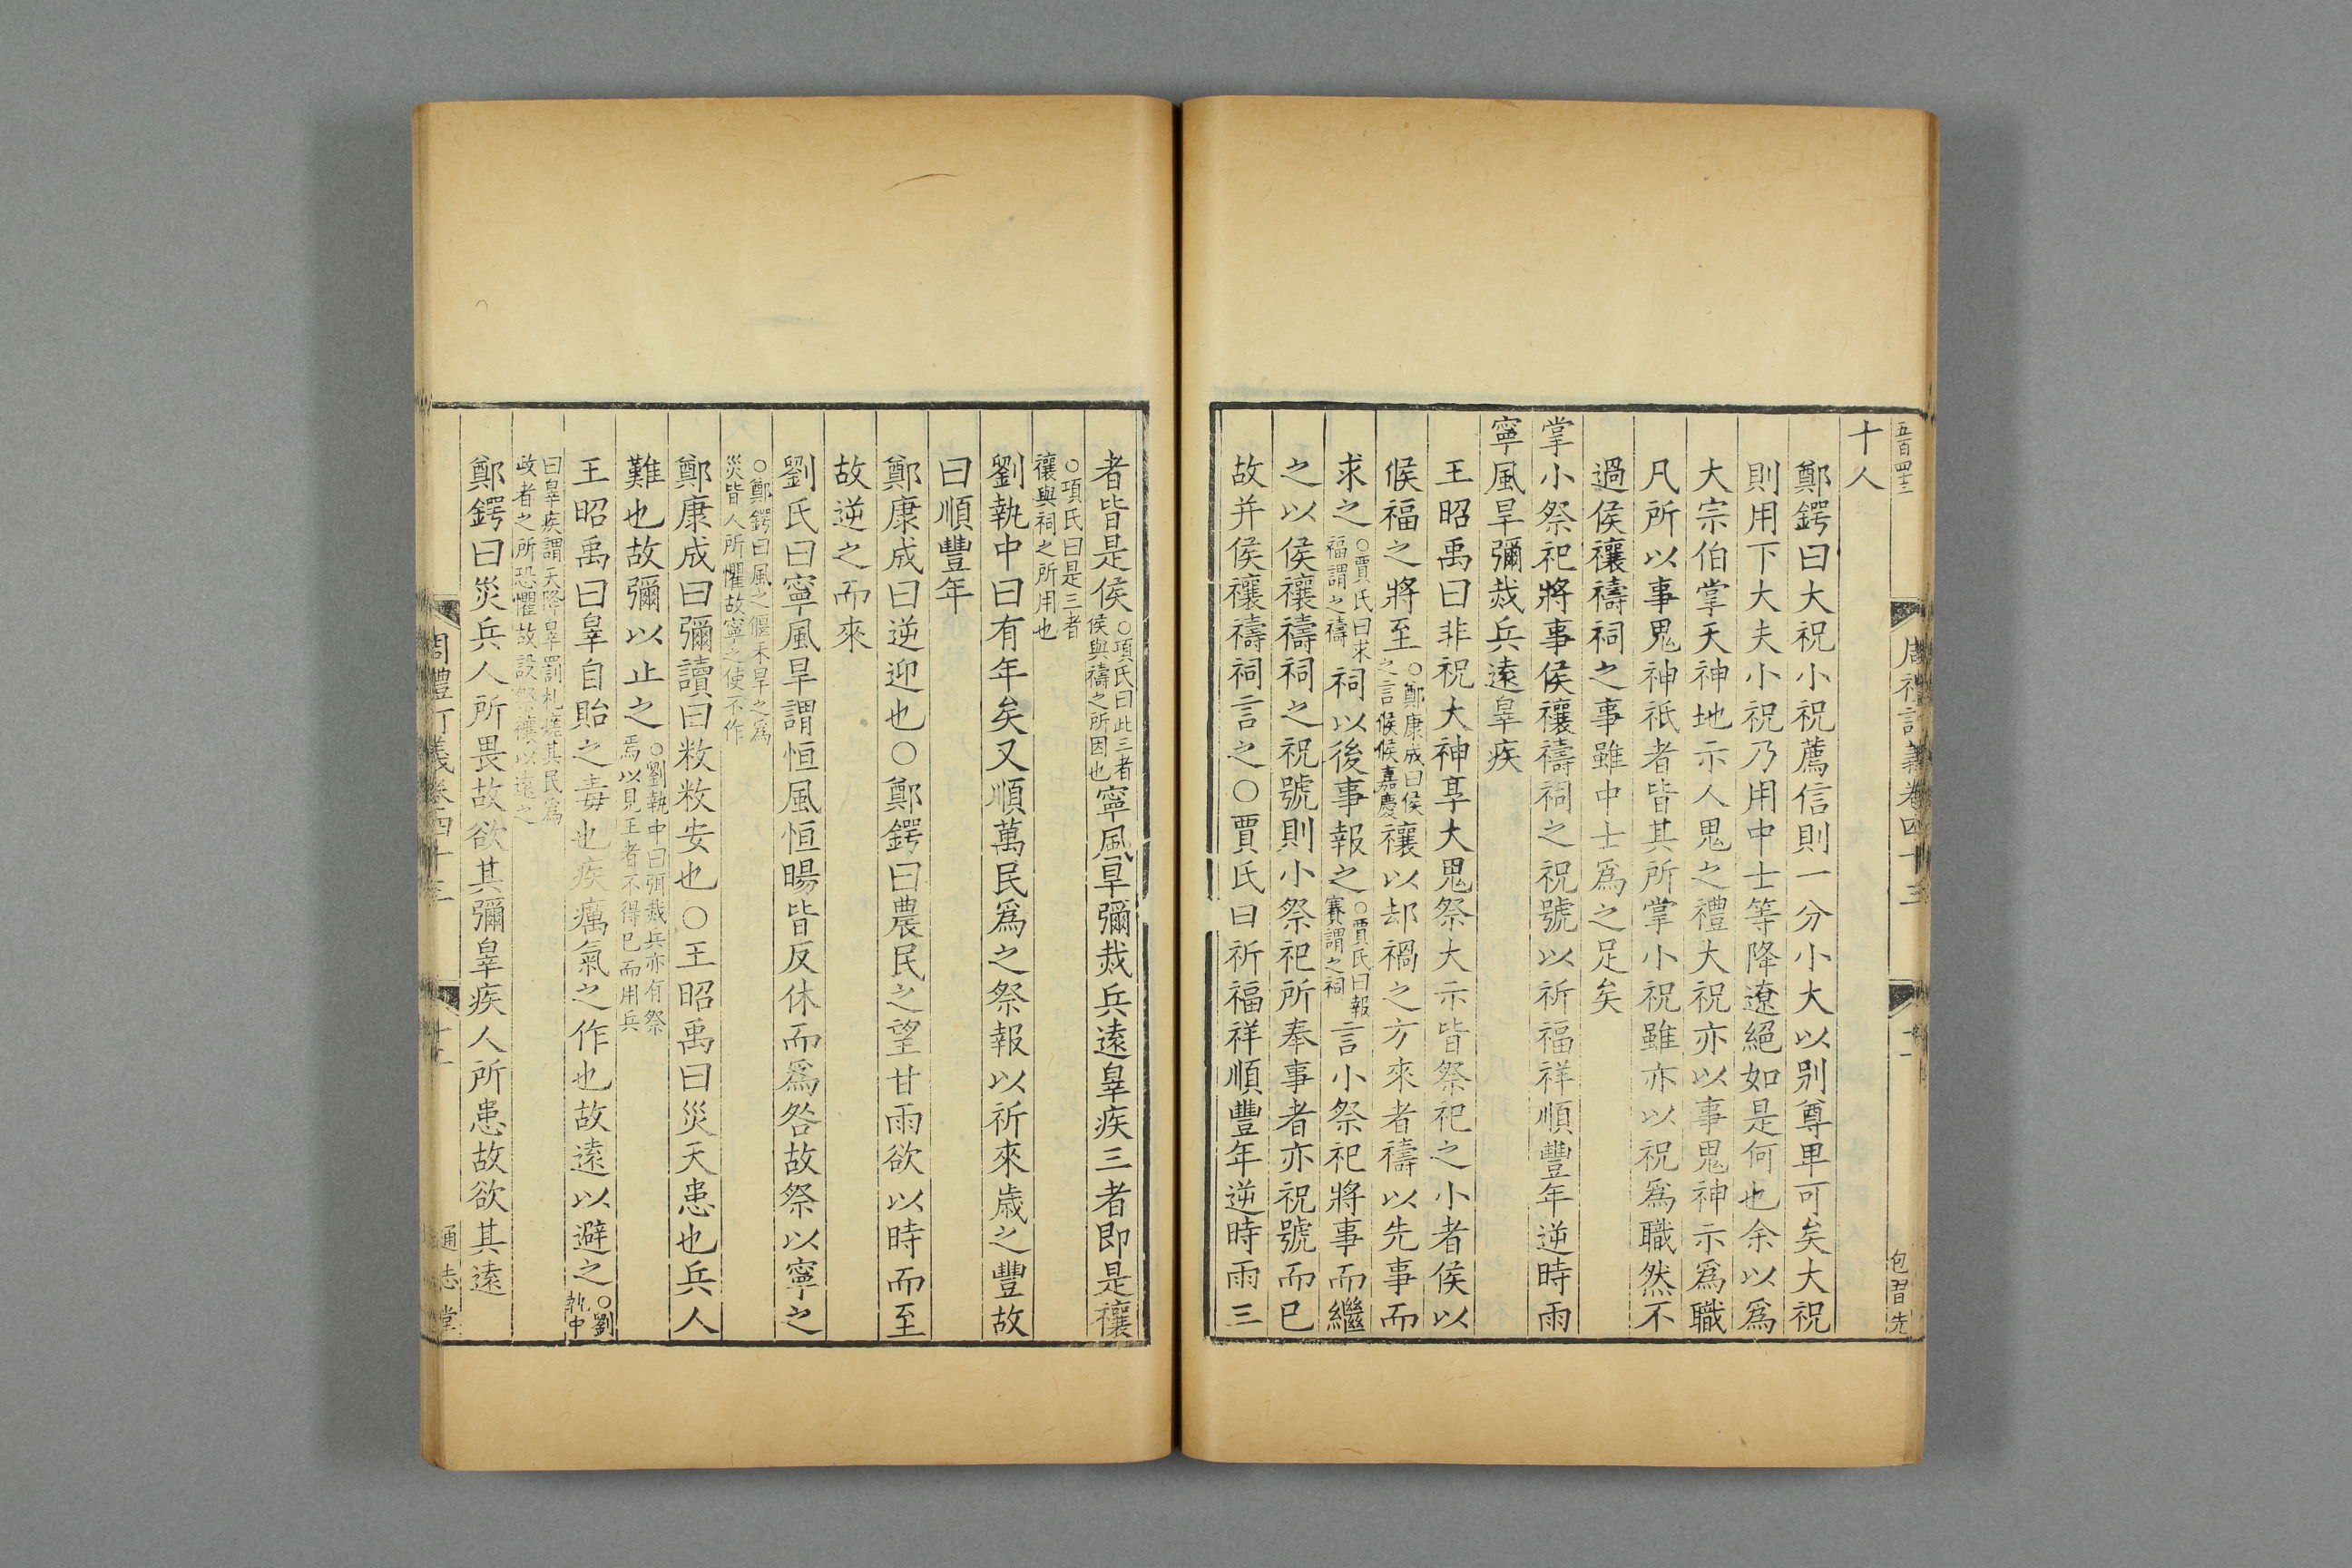 五百四十三
十人
鄭鍔曰大祝小祝薦信則一分小大以别尊卑可矣大祝
則用下大夫小祝乃用中士等降遼絕如是何也余以爲
大宗伯掌天神地示人鬼之禮大祝亦以事鬼神示爲職
凡所以事鬼神祇者皆其所掌小祝雖亦以祝爲職然不
過侯禳禱祠之事雖中士爲之足矣
掌小祭祀將事侯禳禱祠之祝號以祈福祥順豐年逆時雨
寧風旱彌烖兵遠辠疾
王昭禹曰非祝大神享大鬼祭大示皆祭祀之小者侯以
候福之將至○鄭康成曰侯之言候候嘉慶禳以却禍之方來者禱以先事而
求之○賈氏曰求福謂之禱祠以後事報之○賈氏曰報賽謂之祠言小祭祀將事而繼
之以侯禳禱祠之祝號則小祭祀所奉事者亦祝號而已
故并侯禳禱祠言之○賈氏曰祈福祥順豐年逆時雨三
包習先
者皆是侯○項氏曰此三者侯與禱之所因也寧風旱彌烖兵遠辠疾三者即是禳
○項氏曰是三者禳與祠之所用也
劉執中曰有年矣又順萬民爲之祭報以祈來歲之豐故
曰順豐年
鄭康成曰逆迎也○鄭鍔曰農民之望甘雨欲以時而至
故逆之而來
劉氏曰寧風旱謂恒風恒暘皆反休而爲咎故祭以寧之
○鄭鍔曰風之偃禾旱之爲災皆人所懼故寧之使不作
鄭康成曰彌讀曰敉敉安也○王昭禹曰災天患也兵人
難也故彌以止之○劉執中曰彌烖兵亦有祭焉以見王者不得已而用兵
王昭禹曰辠自貽之毒也疾癘氣之作也故遠以避之○劉執中
曰辠疾謂天降辠罰札瘥其民爲政者之所恐懼故設祭禳以遠之
鄭鍔曰災兵人所畏故欲其彌辠疾人所患故欲其遠
通志堂